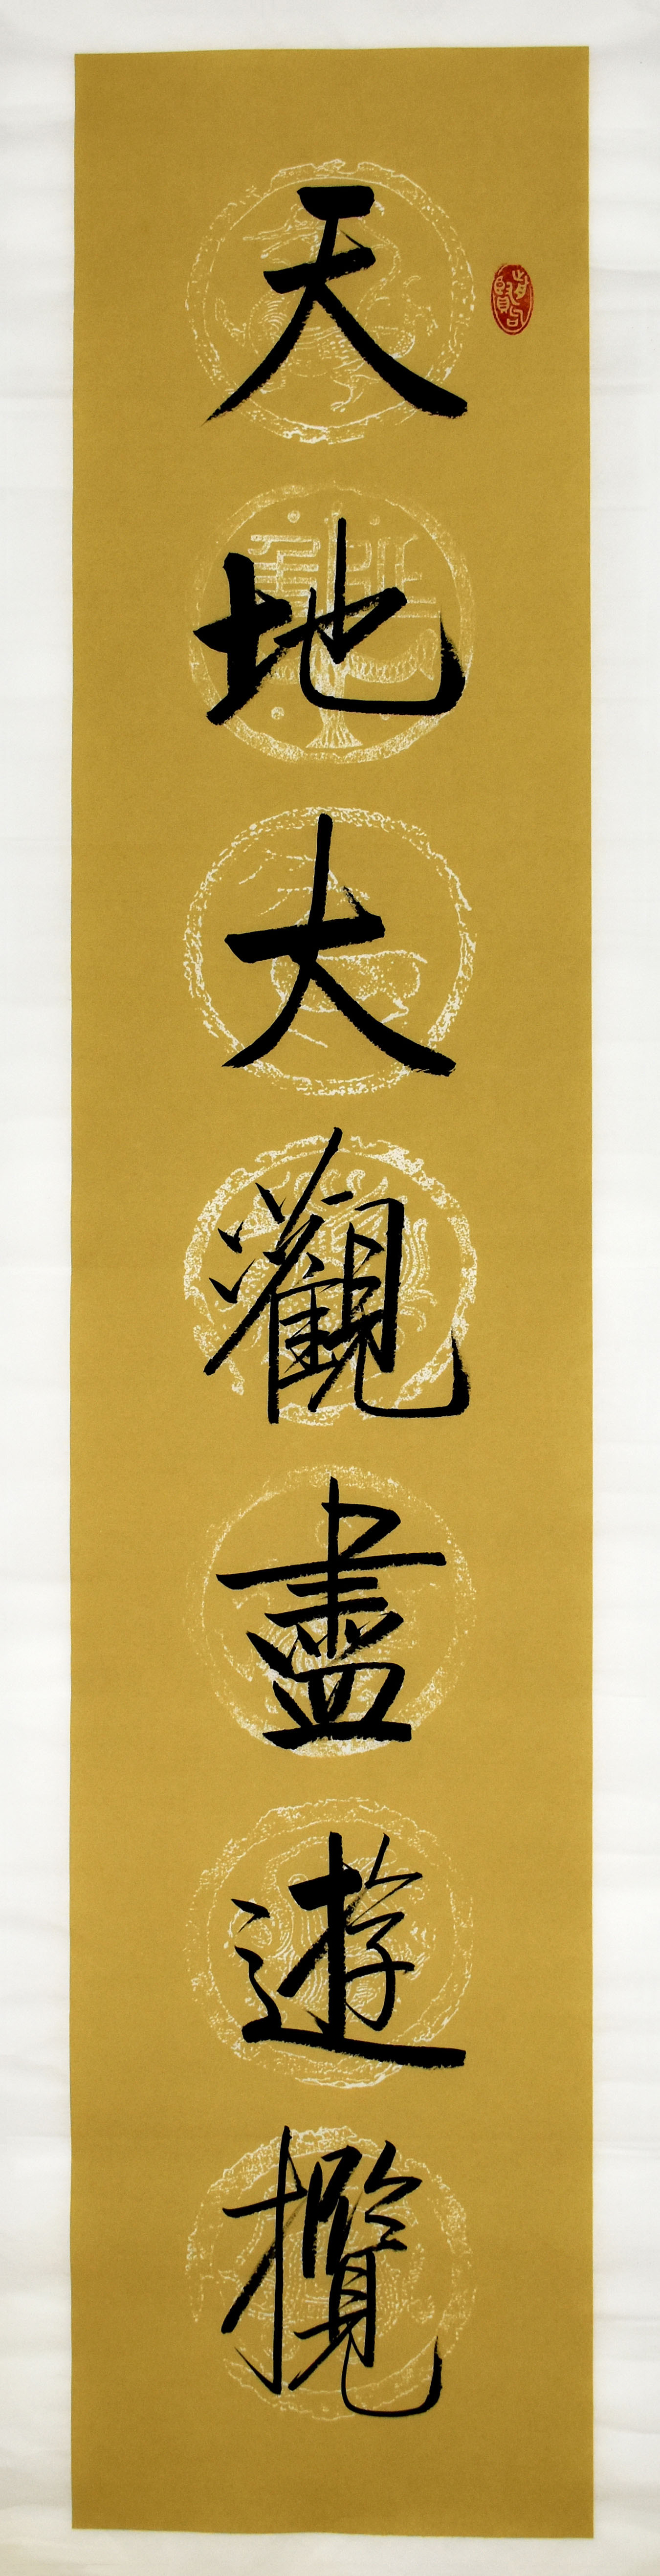 天地大觀盡遊攬